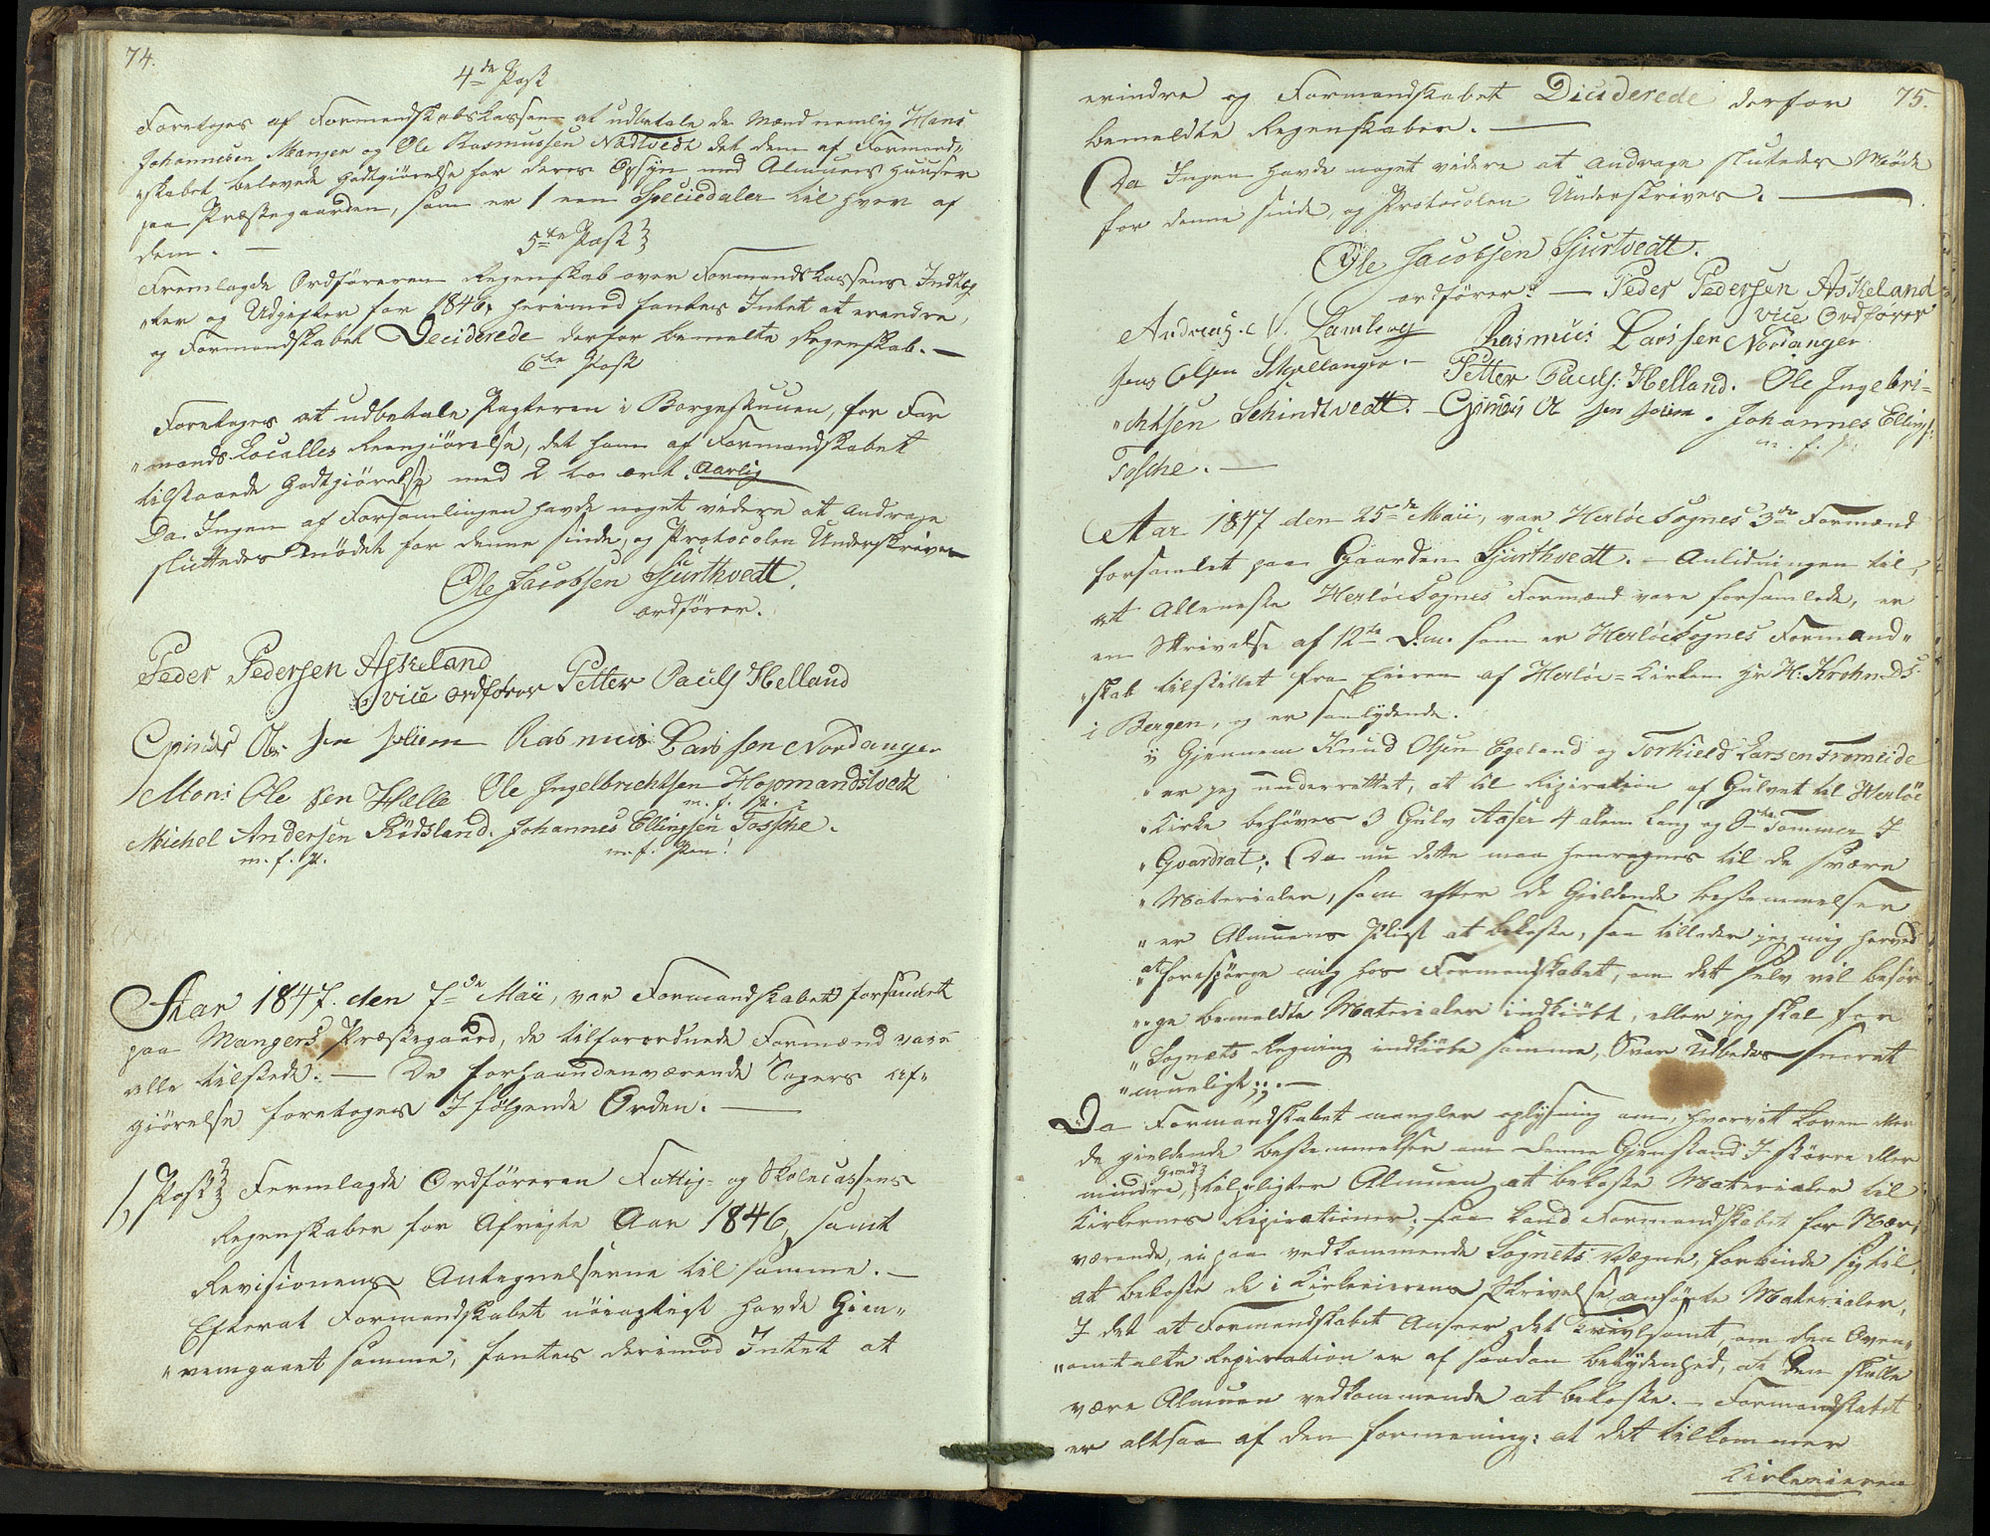 74.
4de Post
Foretoges af Formandskabskassen at udbetale de Mænd nemlig Hans
Johannesen Mangen og Ole Rasmussen Nødtvedt det dem af Formand„
„skabet belovede godtgiørelse for deres Opsyn med Almuens Huuser
paa Præstegaarden, som er 1 een Speciedaler til hver af
dem. —
5te Post
Fremlagde Ordføreren Regenskab over Formandskassens Indtæg„
„ter og Udgifter for 1846, herimod fantes Intet at erendre,
og Formandskabet Deciderede derfor bemelte Regenskab. —
6te Post
Foretoges at udbetale Pagteren i Borgestuuen, for For
„mands Localles Reengiørelse, det ham af Formandskabet
tilstaaede Godtgiørelse med 2 to ort. Aarlig
Da Ingen af Forsamlingen havde noget videre at Andrage
sluttedes Mødet for denne sinde, og Protocolen Underskreven
Ole Jacobsen Sjurthvedt.
ordfører.
Peder Pedersen Askeland
vice ordfører Petter Pauls Helland
Ole sen Soliem Rasmus Larssen Nordanger
Mons Ole sen Hælle Ole Ingelbrichtsen Hopmandstvedt
m. f. P.
Michel Andersen Rødsland. Johannes Ellingsen Tossche.
m. f. P. m. f. Pen!
Aar 1847. den 7de Maii, var Formandskabet forsamlet
paa Mangers Præstegaard, de tilforordnede Formænd vare
alle tilstede. — De forhaandenværende Sagers Af„
giørelse foretoges I følgende Orden. —
1, Post Fremlagde Ordføreren Fattig- og Skolecassens
Regenskaber for Afvigte Aar 1846, samt
Revisionens Antegnelserne til samme. —
Efterat Formandskabet nøiagtigt havde Gien„
„nemgaaet samme, fantes derimod Intet at
75.
erindre og Formandskabet Deciderede derfor
bemeldte Regenskaber. —
Da Ingen havde noget videre at andrage sluttedes Møde
for denne sinde, og Protocolen Underskrives. —
Ole Jacobsen Sjurtvedt.
ordfører. — Peder Pedersen Askeland
vice Ordfører
Andreas. Lamberg Rasmus Larssen Nordanger
Jens Olsen Skjellanger. — Petter Pauls: Helland. Ole Ingebri=
„chtsen Schindtvedt. — Ole sen Soliem. Johannes Ellings:
m. f. P.
Tosche. —
Aar 1847 den 25de Maii, var Herløe Sognes 3de Formænd
forsamlet paa Gaarden Sjurthvedt. — Anledningen til,
at Alleneste Herløe Sognes Formænd vare forsamlede, er
en Skrivelse af 12te D.m. som er Herløe Sognes Formand„
„skab tilstillet fra Eieren af Herløe=Kirken Hr H: Krohn
i Bergen, og er saalydende.
„ Gjennem Knud Olsen Egeland og Torkield Larsen Fromeide
„ er jeg underrettet, at til Repiration af Gulvet til Herløe
„ Kirke behøves 3 Gulv Aaser 4 alen Lang og 8te Tommer I
„ Qvardrat; Da nu dette maa henregnes til de svære
„ Materialer, som efter de Gjeldende bestemmelser
„ er Almuens Pligt at bekoste, saa tillader jeg mig herved
„ at forespørge mig hos Formandskabet, om det selv vil besør
„„ge bemeldte Materialer indkiøbt, eller jeg skal for
„ Sognets Regning indkiøbe samme, Svar Udbedes snarest
„ mueligt;;. —
Da Formandskabet mangler oplysning om, hvorvit Loven eller
de gieldende bestemmelser om denne Gjenstand I større eller
mindre Grad, tilpligter Almuen at bekoste Materialer til
Kirkernes Repirationer, saa kand Formandskabet for Nær„
værende, ei paa vedkommende Sognets Vægne, forbinde sig til,
at bekoste de i Kirkeeierens Skrivelse anførte Materialer,
I det at Formandskabet Anseer det tvivlsomt, om den Oven„
„omtalte Repiration er af saadan betydenhed, at den skulle
være Almuen vedkommende at bekoste. — Formandskabet
er altsaa af den formening: at det tilkommer
Kirkeeieren